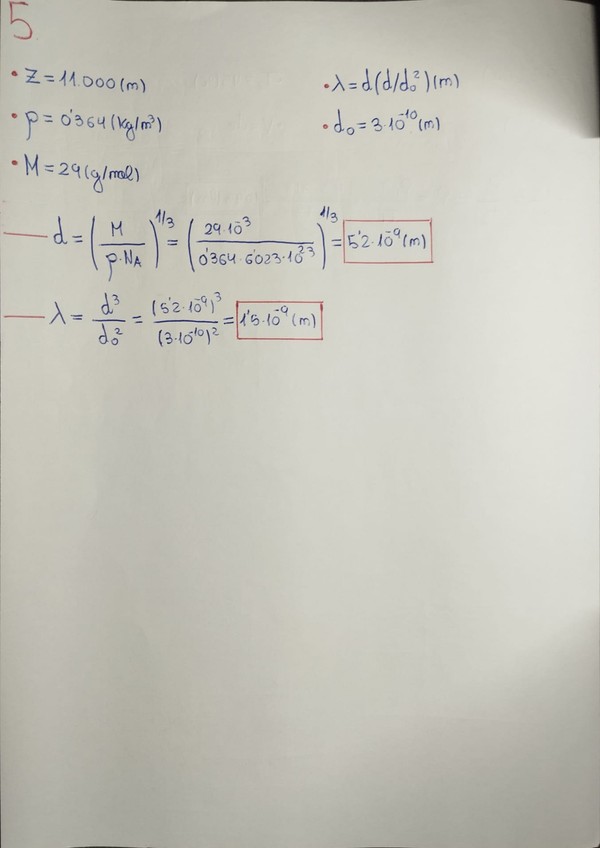 5
• Z = 11.000 (m)
• λ = d(d/d₀²) (m)
• ρ = 0'364 (kg/m³)
• d₀ = 3·10⁻¹⁰ (m)
• M = 29 (g/mol)
d = (M / ρ·N_A)^1/3 = (29·10⁻³ / 0'364·6'023·10²³)^1/3 = 5'2·10⁻⁹ (m)
λ = d³ / d₀² = (5'2·10⁻⁹)³ / (3·10⁻¹⁰)² = 1'5·10⁻⁹ (m)